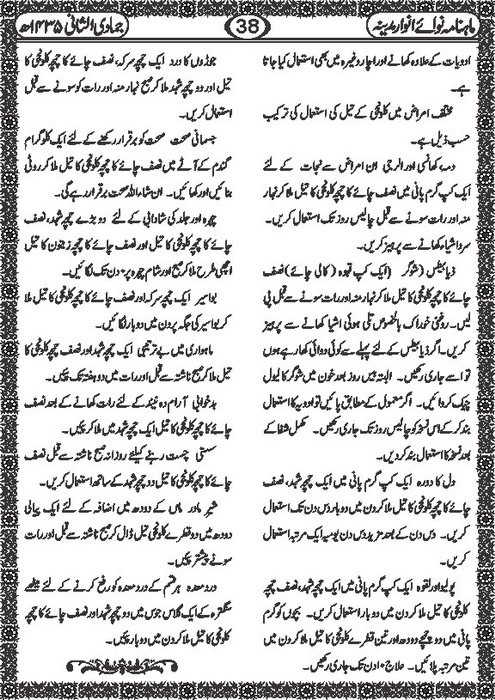 ماہنامہ نوائے انوار مدینہ
38
جمادی الثانی ۱۴۳۵ھ
ادویات کے علاوہ کھانے اور اچار وغیرہ میں بھی استعمال کیا جاتا
ہے۔
مختلف امراض میں کلونجی کے تیل کی استعمال کی ترکیب
حسب ذیل ہے۔
دمہ، کھانسی اور الرجی ان امراض سے نجات کے لئے
ایک کپ گرم پانی میں نصف چائے کا چمچہ کلونجی کا تیل ملا کر نہار
منہ اور رات سونے سے قبل چالیس روز تک استعمال کریں۔
سرد اشیاء کھانے سے پرہیز کریں۔
ذیابیطس (شوگر) (ایک کپ قہوہ (کالی چائے) نصف
چائے کا چمچہ کلونجی کا تیل ملا کر نہار منہ اور رات سونے سے قبل پی
لیں۔ روغنی خوراک بالخصوص تلی ہوئی اشیا کھانے سے پرہیز
کریں۔ اگر ذیابیطس کے لئے پہلے سے کوئی دوائی کھا رہے ہوں
تو اسے جاری رکھیں۔ البتہ بیس روز بعد خون میں شوگر کا لیول
چیک کروائیں۔ اگر معمول کے مطابق پائیں تو ادویہ کا استعمال
بند کر کے اس نسخہ کو چالیس روز تک جاری رکھیں۔ مکمل شفا کے
بعد نسخہ کا استعمال بند کر دیں۔
دل کا دورہ ایک کپ گرم پانی میں ایک چمچہ شہد، نصف
چائے کا چمچہ کلونجی کا تیل ملا کر دن میں دو بار دس دن تک استعمال
کریں۔ دس دن کے بعد مزید دس دن یومیہ ایک مرتبہ استعمال
کریں۔
پولیو اور لقوہ ایک کپ گرم پانی میں ایک چمچہ شہد، نصف چمچہ
کلونجی کا تیل ملا کر دن میں دو بار استعمال کریں۔ بچوں کو گرم
پانی میں دو چمچے دودھ اور تین قطرے کلونجی کا تیل ملا کر دن میں
تین مرتبہ پلائیں۔ علاج ۴۰ دن تک جاری رکھیں۔
جوڑوں کا درد ایک چمچہ سرکہ، نصف چائے کا چمچہ کلونجی کا
تیل اور دو چمچہ شہد ملا کر صبح نہار منہ اور رات کو سونے سے قبل
استعمال کریں۔
جسمانی صحت صحت کو برقرار رکھنے کے لئے ایک کلو گرام
گندم کے آٹے میں نصف چائے کا چمچہ کلونجی کا تیل ملا کر روٹی
بنائیں اور کھائیں۔ ان شاء اللہ صحت برقرار رہے گی۔
چہرہ اور جلد کی شادابی کے لئے دو بڑے چمچہ شہد، نصف
چائے کا چمچہ کلونجی کا تیل اور نصف چائے کا چمچہ زیتون کا تیل
اچھی طرح ملا کر صبح اور شام چہرہ پر ۴۰ دن تک لگائیں۔
بواسیر ایک چمچہ سرکہ اور نصف چائے کا چمچہ کلونجی کا تیل ملا
کر بواسیر کی جگہ پر دن میں دو بار لگائیں۔
ماہواری میں بے ترتیبی ایک چمچہ شہد اور نصف چمچہ کلونجی کا
تیل ملا کر صبح ناشتہ سے قبل اور رات میں دو ہفتہ تک پیئیں۔
بدخوابی آرام دہ نیند کے لئے رات کھانے کے بعد نصف
چائے کا چمچہ کلونجی کا تیل ایک چمچہ شہد میں ملا کر پیئیں۔
سستی چست رہنے کیلئے روزانہ صبح ناشتہ سے قبل نصف
چائے کا چمچہ کلونجی کا تیل دو چمچہ شہد کے ساتھ استعمال کریں۔
شیر مادر ماں کے دودھ میں اضافہ کے لئے ایک پیالی
دودھ میں دو قطرے کلونجی تیل ڈال کر صبح ناشتہ سے قبل اور رات
سونے پیشتر پیئیں۔
درد معدہ ہر قسم کے درد معدہ کو رفع کرنے کے لئے میٹھے
سنگترہ کے ایک گلاس جوس میں دو چمچہ شہد اور نصف چائے کا چمچہ
کلونجی کا تیل ملا کر دن میں دو بار پیئیں۔